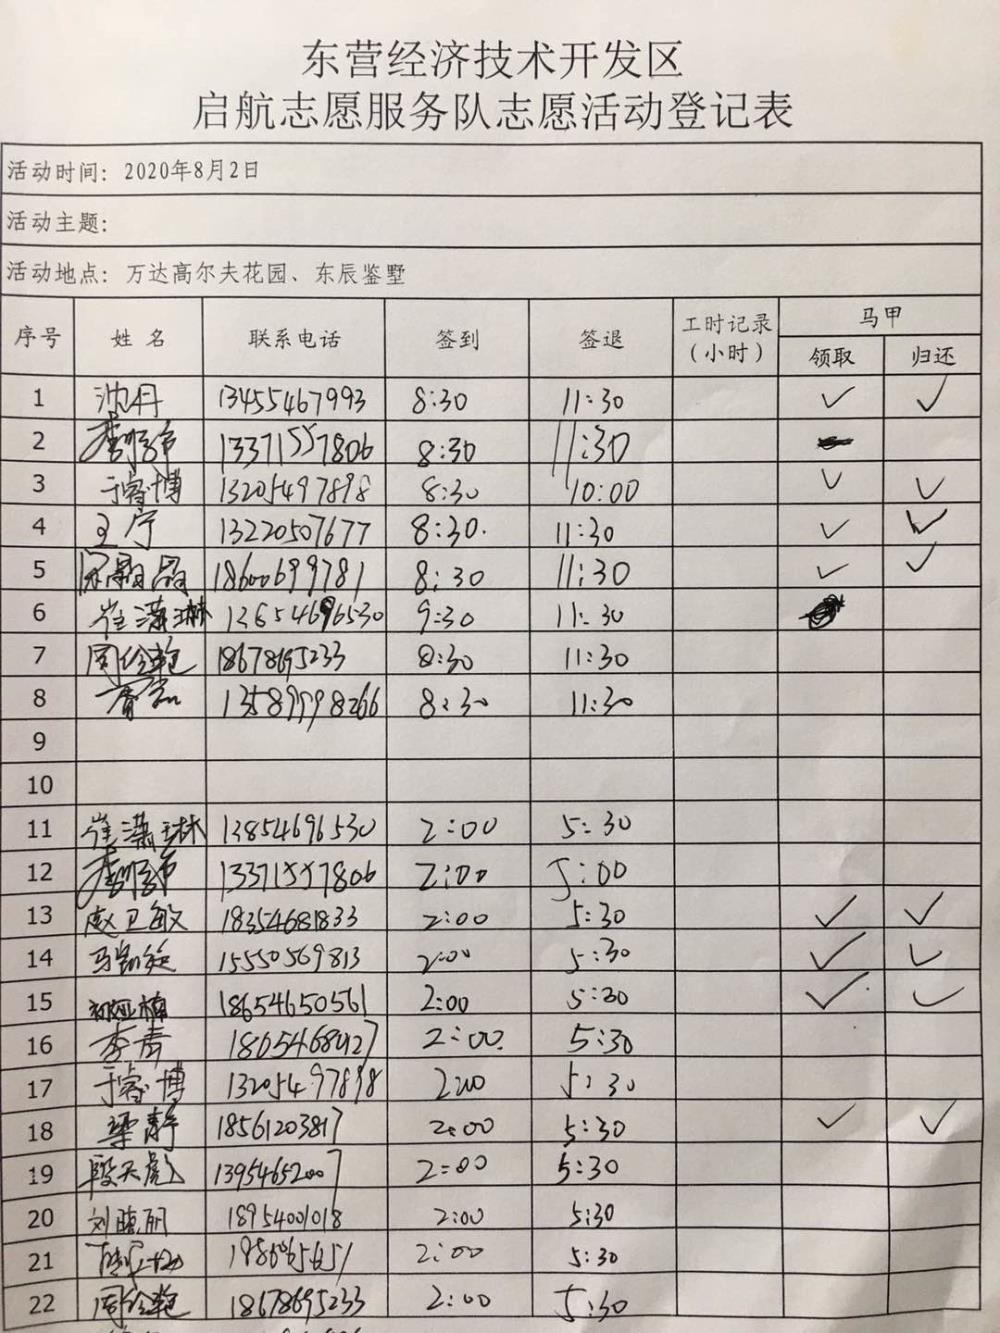 东营经济技术开发区
启航志愿服务队志愿活动登记表
活动时间: 2020年8月2日
活动主题:
活动地点: 万达高尔夫花园、东辰鉴墅
序号 姓 名 联系电话 签到 签退 工时记录(小时) 马甲
领取 归还
1 沈丹 13455467993 8:30 11:30 ✓ ✓
2 13371557806 8:30 11:30
3 于睿博 13205497898 8:30 10:00 ✓ ✓
4 王宁 13220507677 8:30. 11:30 ✓ ✓
5 18600699781 8:30 11:30 ✓ ✓
6 崔潇琳 13654696530 9:30 11:30
7 18678695233 8:30 11:30
8 13589998266 8:30 11:30
9
10
11 崔潇琳 13854696530 2:00 5:30
12 13371557806 2:00 5:00
13 赵卫敏 18354681833 2:00 5:30 ✓ ✓
14 15550569813 2:00 5:30 ✓ ✓
15 18654650561 2:00 5:30 ✓ ✓
16 李青 2:00 5:30
17 于睿博 13205497898 2:00 5:30
18 梁静 18561203817 2:00 5:30 ✓ ✓
19 段天彪 13954652007 2:00 5:30
20 刘晓丽 18954001018 2:00 5:30
21 2:00 5:30
22 18678695233 2:00 5:30